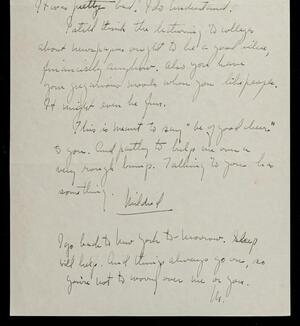 It was pretty bad. I do understand.
I still think the lectures to colleges
about newspapers ought to be a good idea,
financially anyhow. Also you have
your gregarious moods when you like people.
It might even be fun.
This is meant to say "be of good cheer"
to you. And partly to help me over a
very rough bump. Talking to you has
something.
Mildred
I go back to New York to-morrow. Sleep
will help. And things always go one, so
you're not to worry over me or you.
M.